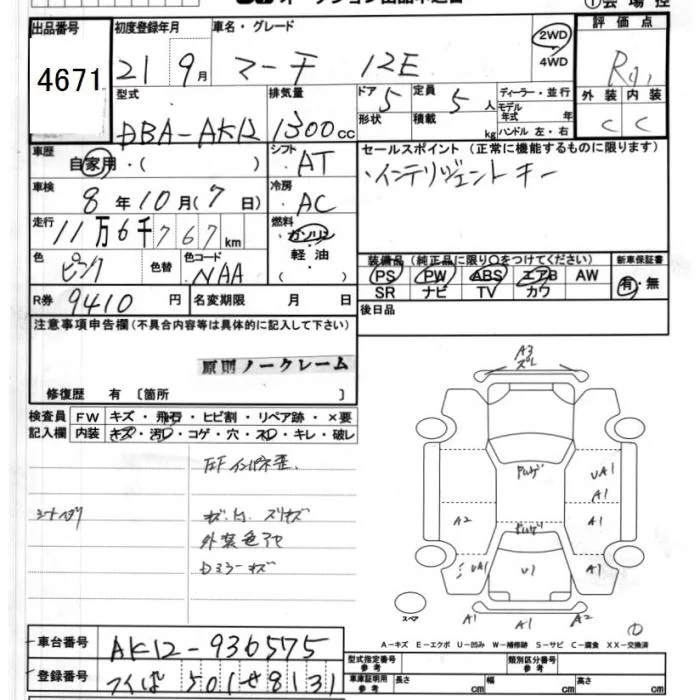 出品番号
4671
初度登録年月
21 9月
車名・グレード
マーチ 12E
2WD
4WD
評価点
外装 内装
C C
型式
DBA-AK12
排気量
1300cc
ドア
5
形状
定員
5人
積載
kg
ディーラー・並行
モデル年式 年
ハンドル 左・右
車歴
自家用・( )
シフト
AT
セールスポイント (正常に機能するものに限ります)
・インテリジェントキー
車検
8年10月(7日)
冷房
AC
走行
11万6千767km
燃料
ガソリン
軽・油
( )
色
ピンク
色替
色コード
NAA
装備品 (純正品に限り○をつけてください)
PS PW ABS エアB AW
SR ナビ TV カワ
新車保証書
有・無
R券
9410円
名変期限 月 日
後日品
注意事項申告欄 (不具合内容等は具体的に記入して下さい)
原則ノークレーム
修復歴 有 〔箇所 〕
検査員記入欄
FW キズ・飛石・ヒビ割・リペア跡・×要
内装 キズ・汚れ・コゲ・穴・スレ・キレ・破レ
外装色アセ
Dミラーキズ
A3
UA1
A1
A2
A1
UA1
U1
A1
スペア
A1
A1
A2
A-キズ E-エクボ U-凹み W-補修跡 S-サビ C-腐食 XX-交換済
車台番号
AK12-936575
登録番号
つくば 501せ8131
型式指定番号
参考
類別区分番号
参考
車庫証明用
参考
長さ cm
幅 cm
高さ cm